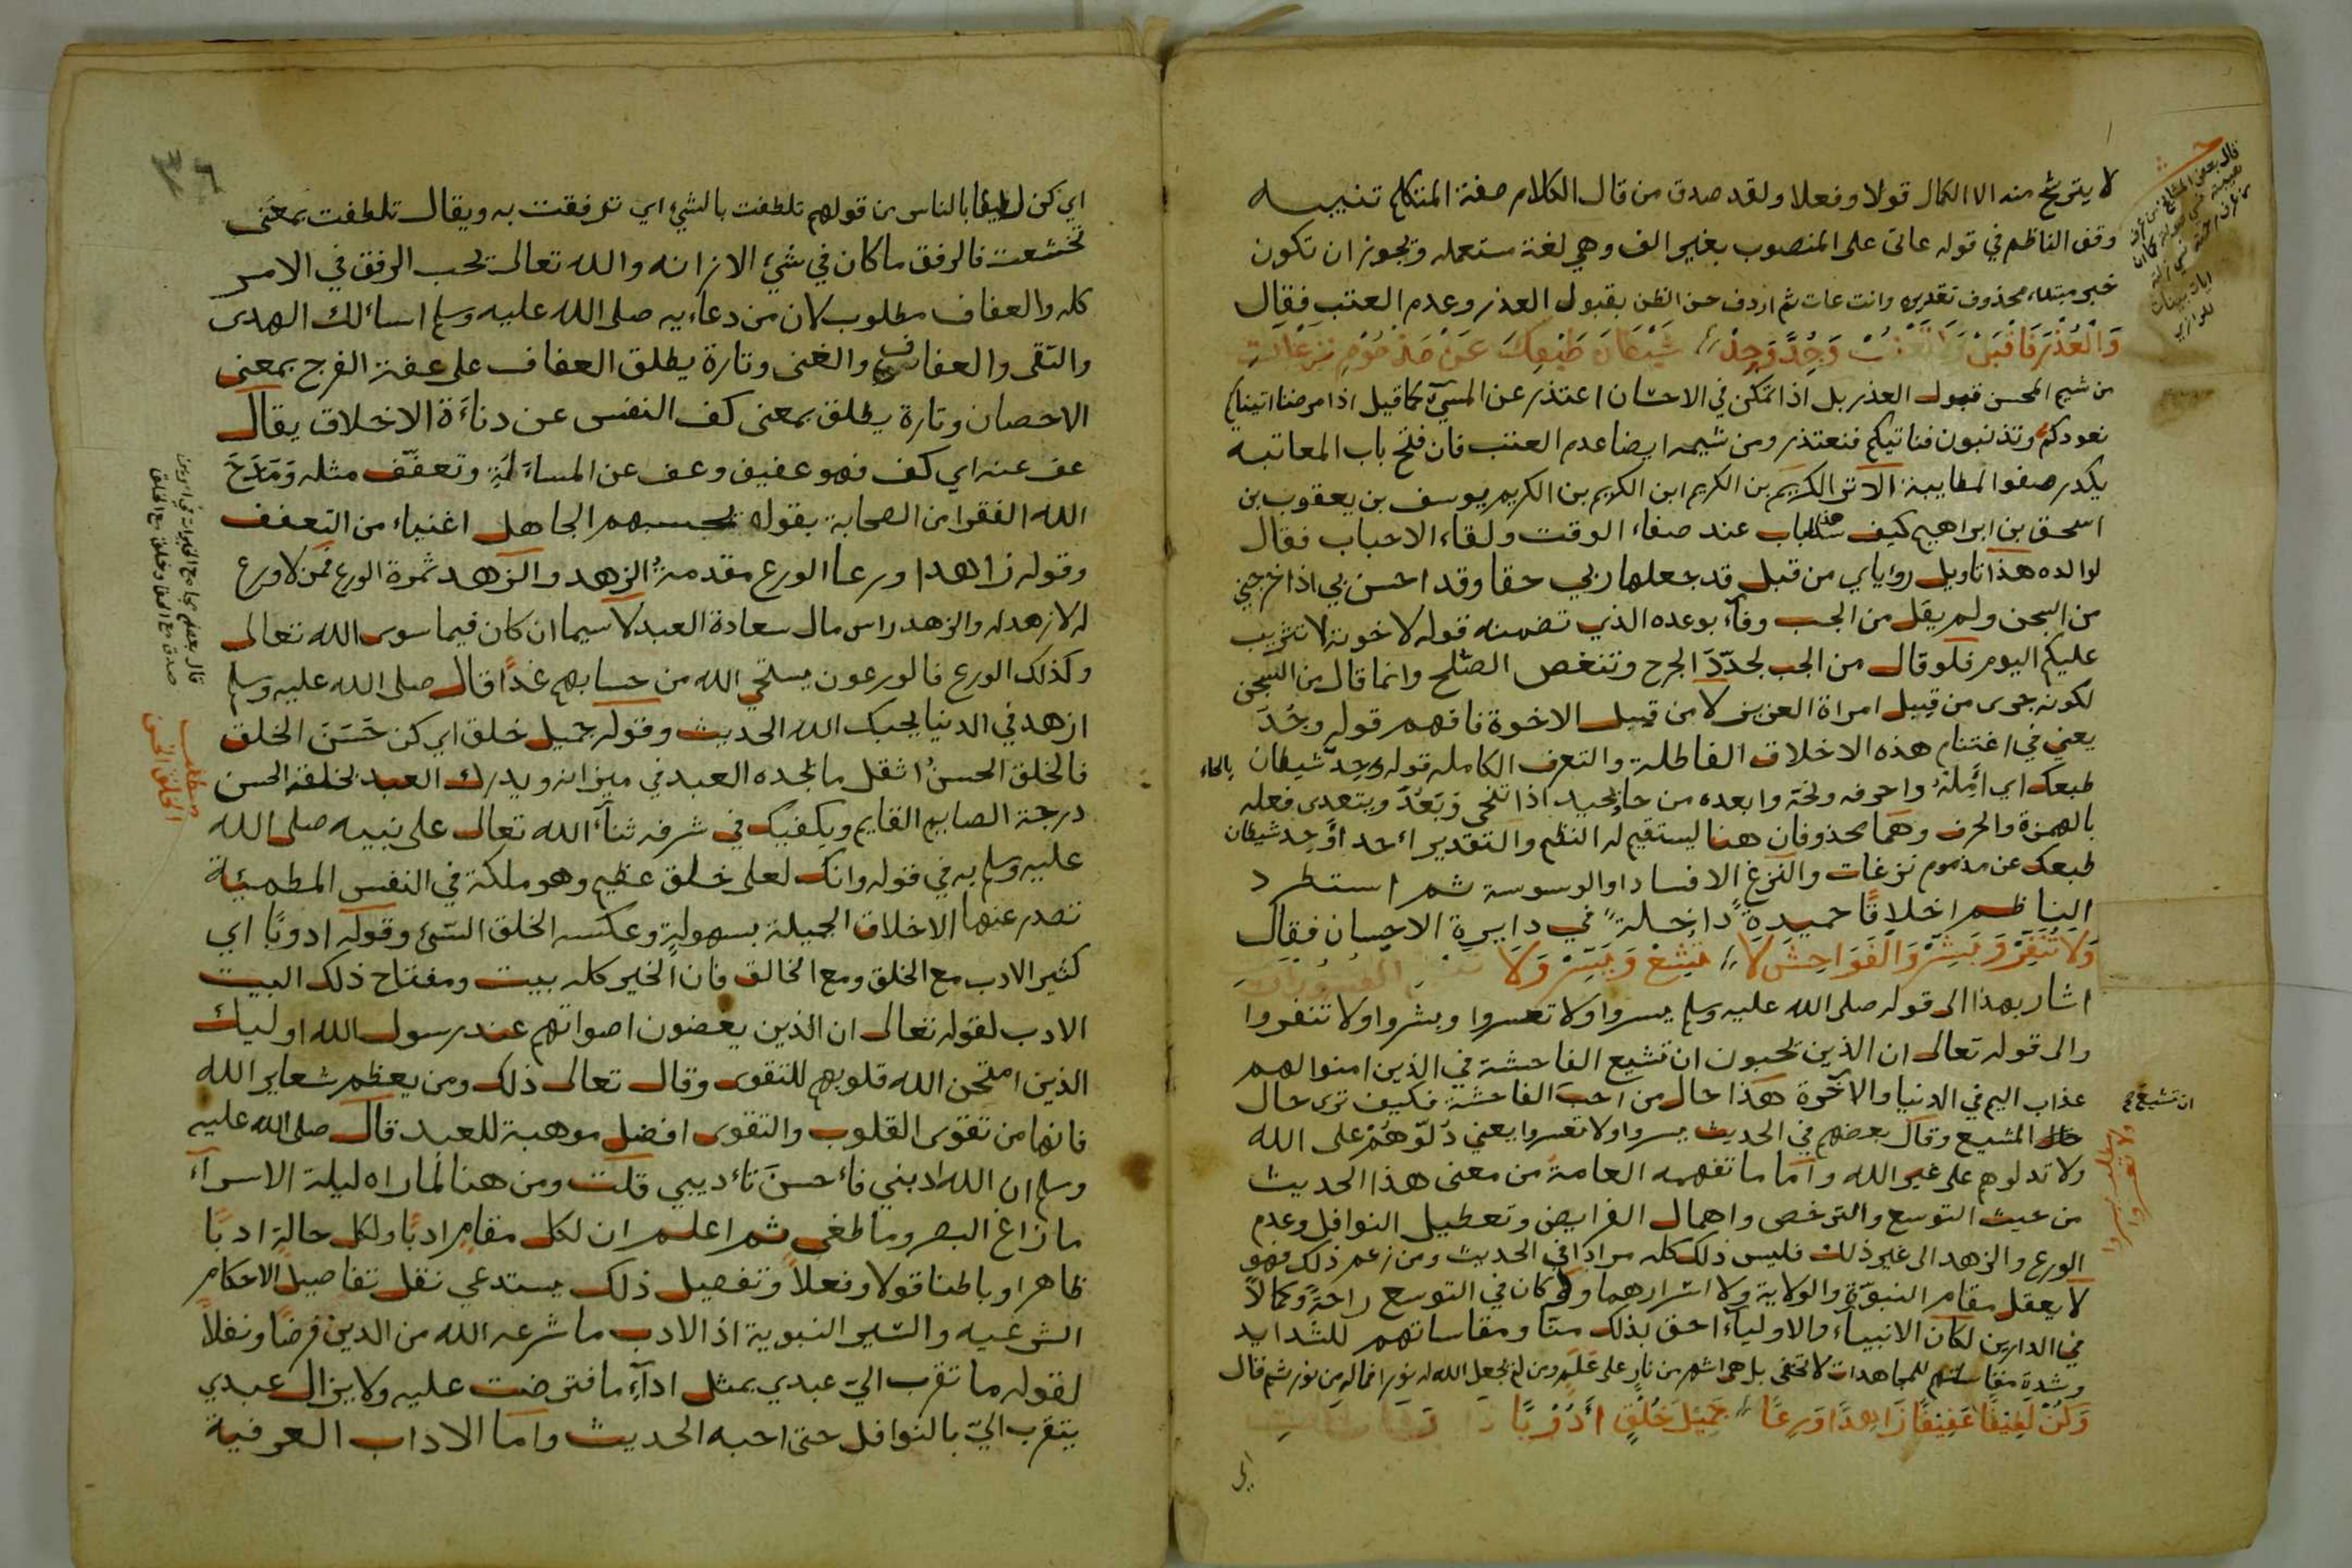 لا يترشح منه الا الكمال قولا وفعلا ولقد صدق من قال الكلام صفة المتكلم تنبيه
وقف الناظم في قوله عات على المنصوب بغير الف وهي لغة مستعمله ويجوز ان تكون
خبر مبتداء محذوف تقديره وانت عات ثم اردف حسن الظن بقبول العذر وعدم العتب فقال
وَالْعُذْرَ فَاقْبَلْ وَجُدَّ وَحِدْ شَيْطَانَ طَبْعِكَ عَنْ مَذْمُوْمِ نَزَغَاتِ
من شيم المحسن قبول العذر بل اذا تمكن في الاحسان اعتذر عن المسيء كما قيل اذا مرضنا اتيناكم
نعودكم وتذنبون فناتيكم فنعتذر ومن شيمه ايضا عدم العتب فان فتح باب المعاتبه
يكدر صفو المطايبة الا ترى الكريم بن الكريم ابن الكريم بن الكريم يوسف بن يعقوب بن
اسحق بن ابراهيم كيف سد هذا الباب عند صفاء الوقت ولقاء الاحباب فقال
لوالده هذا تاويل روياي من قبل قد جعلها ربي حقا وقد احسن بي اذ اخرجني
من السجن ولم يقل من الجب وفآء بوعده الذي تضمنه قوله لاخوته لا تثريب
عليكم اليوم فلو قال من الجب لجدّدَ الجرح وتنغص الصّلح وانما قال من السجن
لكونه جرى من قبيل امراة العزيز لا من قبيل الاخوة فافهم قوله وجُدَّ
يعني في اغتنام هذه الاخلاق الفاضلة والتعرف الكامله قوله وحِدْ شيطان بالحاء
طبعك اي امِلهُ واحرفه ونحّه وابعده من حاد يحيد اذا تنحى وَبَعُدَ ويتعدى فعله
بالهمزة والحرف وهما محذوفان هنا ليستقيم له النظم والتقدير احد اوحِد شيطان
طبعك عن مذموم نزغات والنزغ الافساد او الوسوسة ثم استطرد
الناظم اخلاقًا حميدةً داخلةً في دايرة الاحسان فقال
وَلَا تُنَفِّرْ وَبَشِّرْ وَالْفَوَاحِشَ لَا تُشِعْ وَيَسِّرْ وَلَا
اشار بهذا الى قوله صلى الله عليه وسلم يسروا ولا تعسروا وبشروا ولا تنفروا
والى قوله تعالى ان الذين يحبون ان تشيع الفاحشة في الذين امنوا لهم
عذاب اليم في الدنيا والآخرة هذا حال من احب الفاحشة فكيف ترى حال
المشيع وقال بعضهم في الحديث يسروا ولا تعسروا يعني دُلّوهُمْ على الله
ولا تدلوهم على غير الله واما ما تفهمه العامة من معنى هذا الحديث
من حيث التوسع والترخص واهمال الفرايض وتعطيل النوافل وعدم
الورع والزهد الى غير ذلك فليس ذلك كله مرادًا في الحديث ومن زعم ذلك فهو
لا يعقل مقام النبوّة والولاية ولا اسرارهما ولو كان في التوسع راحةً وكمالاً
في الدارين لكان الانبياء والاولياء احق بذلك منّا ومقاساتهم للشدايد
وشدة مقاساتهم للمجاهدات لا تخفى بل هي اشهر من نارٍ على عَلَمٍ ومن لم يجعل الله له نورا فما له من نور ثم قال
وَكُنْ لَطِيْفًا عَفِيْفًا زَاهِدًا وَرِعًا جَمِيْلَ خُلْقٍ أَدُوْبًا
اي
ان تشيع
مطلب يسروا
ولا تعسروا
اي كن لطيفا بالناس من قولهم تلطفت بالشيء اي ترفقت به ويقال تلطفت بمعنى
تخشعت فالرفق ما كان في شيء الا زانه والله تعالى يحب الرفق في الامر
كله والعفاف مطلوب لان من دعاءيه صلى الله عليه وسلم اسائلك الهدى
والتقى والعفاف والغنى وتارة يطلق العفاف على عفة الفرج بمعنى
الاحصان وتارة يطلق بمعنى كف النفس عن دناءَة الاخلاق يقال
عف عنه اي كف فهو عفيف وعف عن المساءَلة وتعفّف مثله وَمَدَحَ
الله الفقرا من الصحابة بقوله يحسبهم الجاهل اغنياء من التعفف
وقوله زاهدا ورعا الورع مقدمةُ الزهد والزهد ثمرة الورع فمن لا ورع
له لا زهد له والزهد راس مال سعادة العبد لا سيما ان كان فيما سوى الله تعالى
وكذلك الورع فالورعون يستحي الله من حسابهم غدًا قال صلى الله عليه وسلم
ازهد في الدنيا يحبك الله الحديث وقوله جميل خلق اي كن حَسَنَ الخلق
فالخلق الحسنُ اثقل ما يجده العبد في ميزانه ويدرك العبد بخلقه الحسن
درجة الصايم القايم ويكفيك في شرفه ثنآء الله تعالى على نبيه صلى الله
عليه وسلم به في قوله وانك لعلى خلق عظيم وهو ملكة في النفس المطمئنة
تصدر عنها الاخلاق الجميلة بسهولةٍ وعكسه الخلق السّيء وقوله ادوبًا اي
كثير الادب مع الخلق ومع الخالق فان الخير كله بيت ومفتاح ذلك البيت
الادب لقوله تعالى ان الذين يغضون اصواتهم عند رسول الله اوليك
الذين امتحن الله قلوبهم للتقوى وقال تعالى ذلك ومن يعظم شعاير الله
فانها من تقوى القلوب والتقوى افضل موهبة للعبد قال صلى الله عليه
وسلم ان الله ادبني فأحسنَ تأديبي قلت ومن هنا لما راه ليلة الاسرآء
ما زاغ البصر وما طغى ثم اعلم ان لكل مقامٍ ادبًا ولكل حالةٍ ادبًا
ظاهرا وباطنا قولا وفعلاً وتفصيل ذلك يستدعي نقل تفاصيل الاحكام
الشرعيه والسّير النبوية اذ الادب ما شرعه الله من الدين فرضًا ونفلاً
لقوله ما تقرب اليّ عبدي بمثل ادآءِ ما افترضت عليه ولا يزال عبدي
يتقرب اليّ بالنوافل حتى احبه الحديث واما الاداب العرفية
٣٦
مطلب
الخلق الحسن